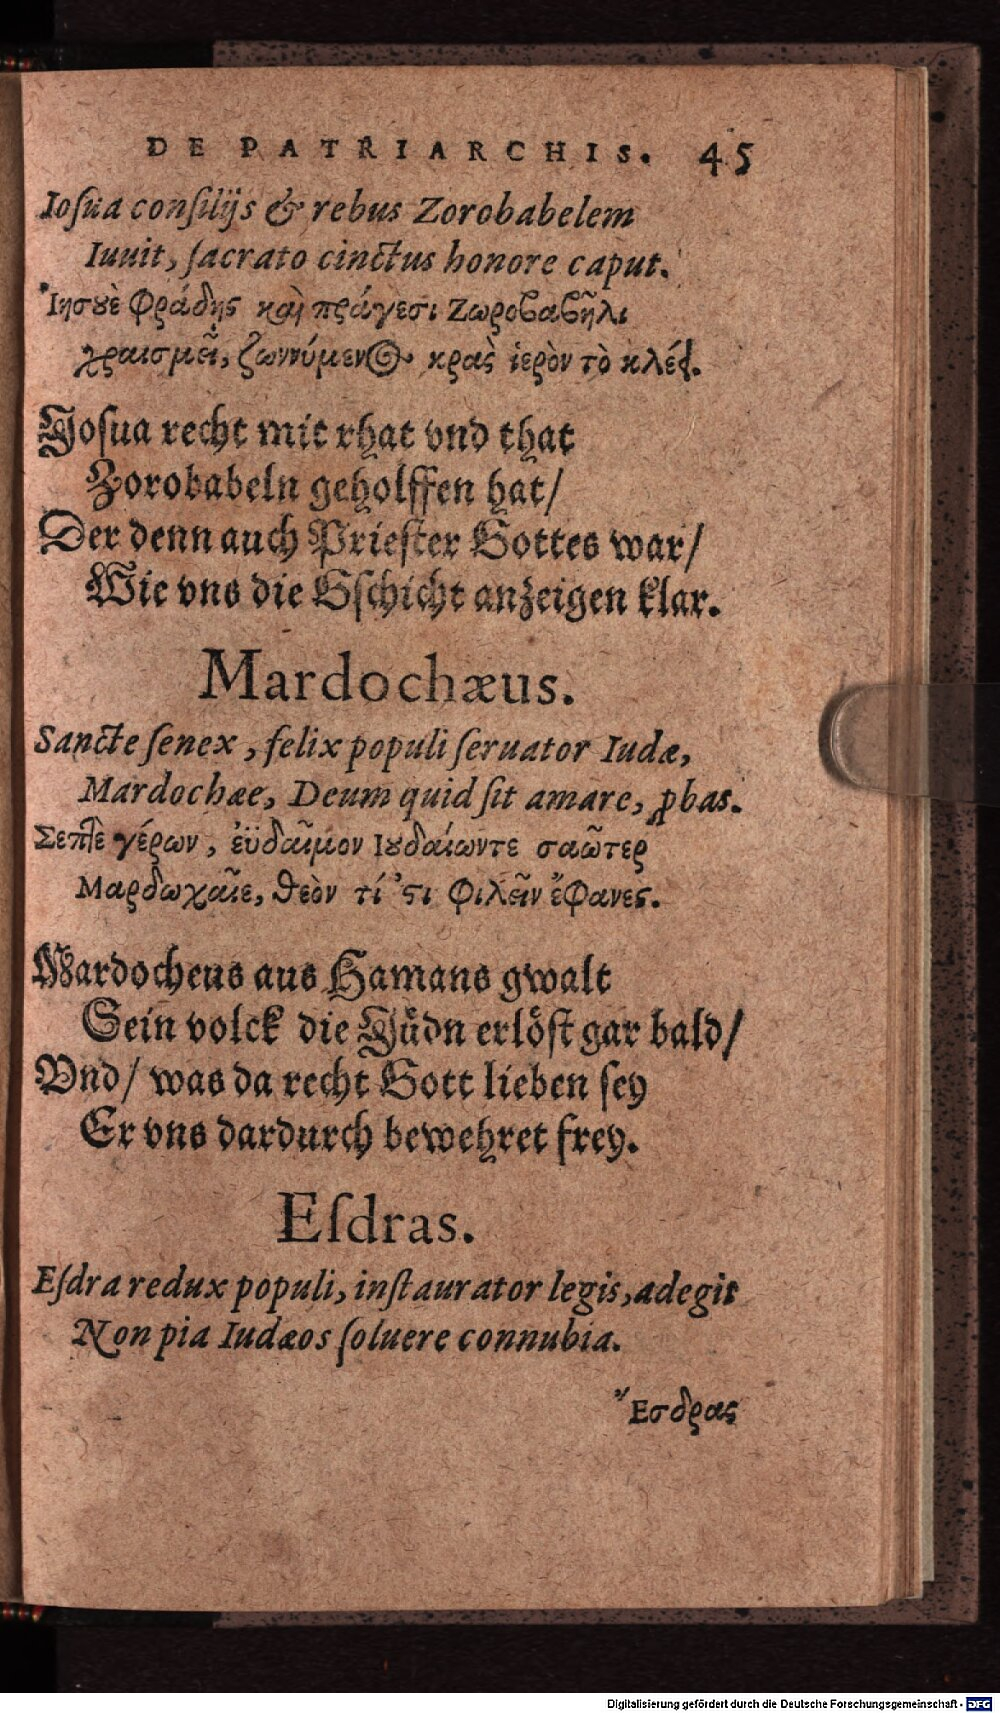 DE PATRIARCHIS. 45
Iosua consilijs & rebus Zorobabelem
Iuuit, sacrato cinctus honore caput.
Ἰησουὲ φράδης καὶ πράγεσι Ζωροβαβῆλι
χραισμεῖ, ζωννύμενος κρας ἱερὸν τὸ κλέος.
Josua recht mit rhat vnd that
Zorobabeln geholffen hat/
Der denn auch Priester Gottes war/
Wie vns die Gschicht anzeigen klar.
Mardochæus.
Sancte senex, felix populi seruator Iudæ,
Mardochæe, Deum quid sit amare, ꝓbas.
Σεπτὲ γέρων, ἐϋδαῖμον Ἰουδαίωντε σαῶτερ
Μαρδωχαῖε, θεὸν τί 'στι φιλεῖν ἔφανες.
Mardocheus aus Hamans gwalt
Sein volck die Jüdn erlöst gar bald/
Vnd/ was da recht Gott lieben sey
Er vns dardurch bewehret frey.
Esdras.
Esdra redux populi, instaurator legis, adegit
Non pia Iudæos soluere connubia.
Ἔσδρας
Digitalisierung gefördert durch die Deutsche Forschungsgemeinschaft - DFG